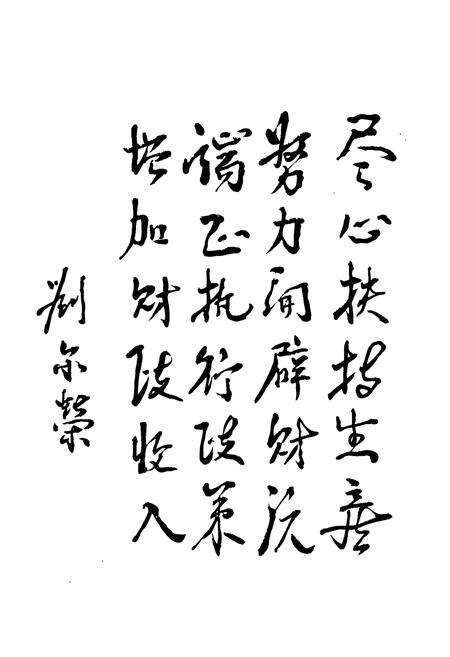 尽心扶持生产
努力开辟财源
端正执行政策
增加财政收入
刘尔荣